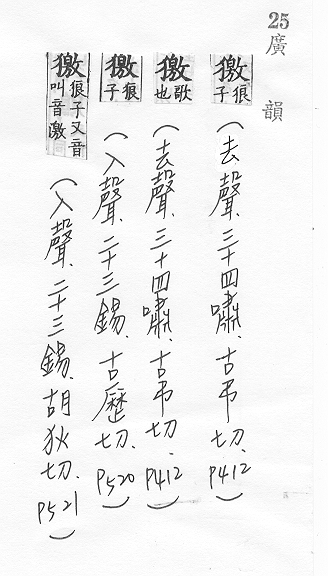 25
廣韻
獥狼子(去聲、三十四嘯、古弔切、P412)
獥歌也(去聲、三十四嘯、古弔切、P412)
獥狼子(入聲、二十三錫、古歷切、P520)
獥狼子又音叫音激(入聲、二十三錫、胡狄切、P521)